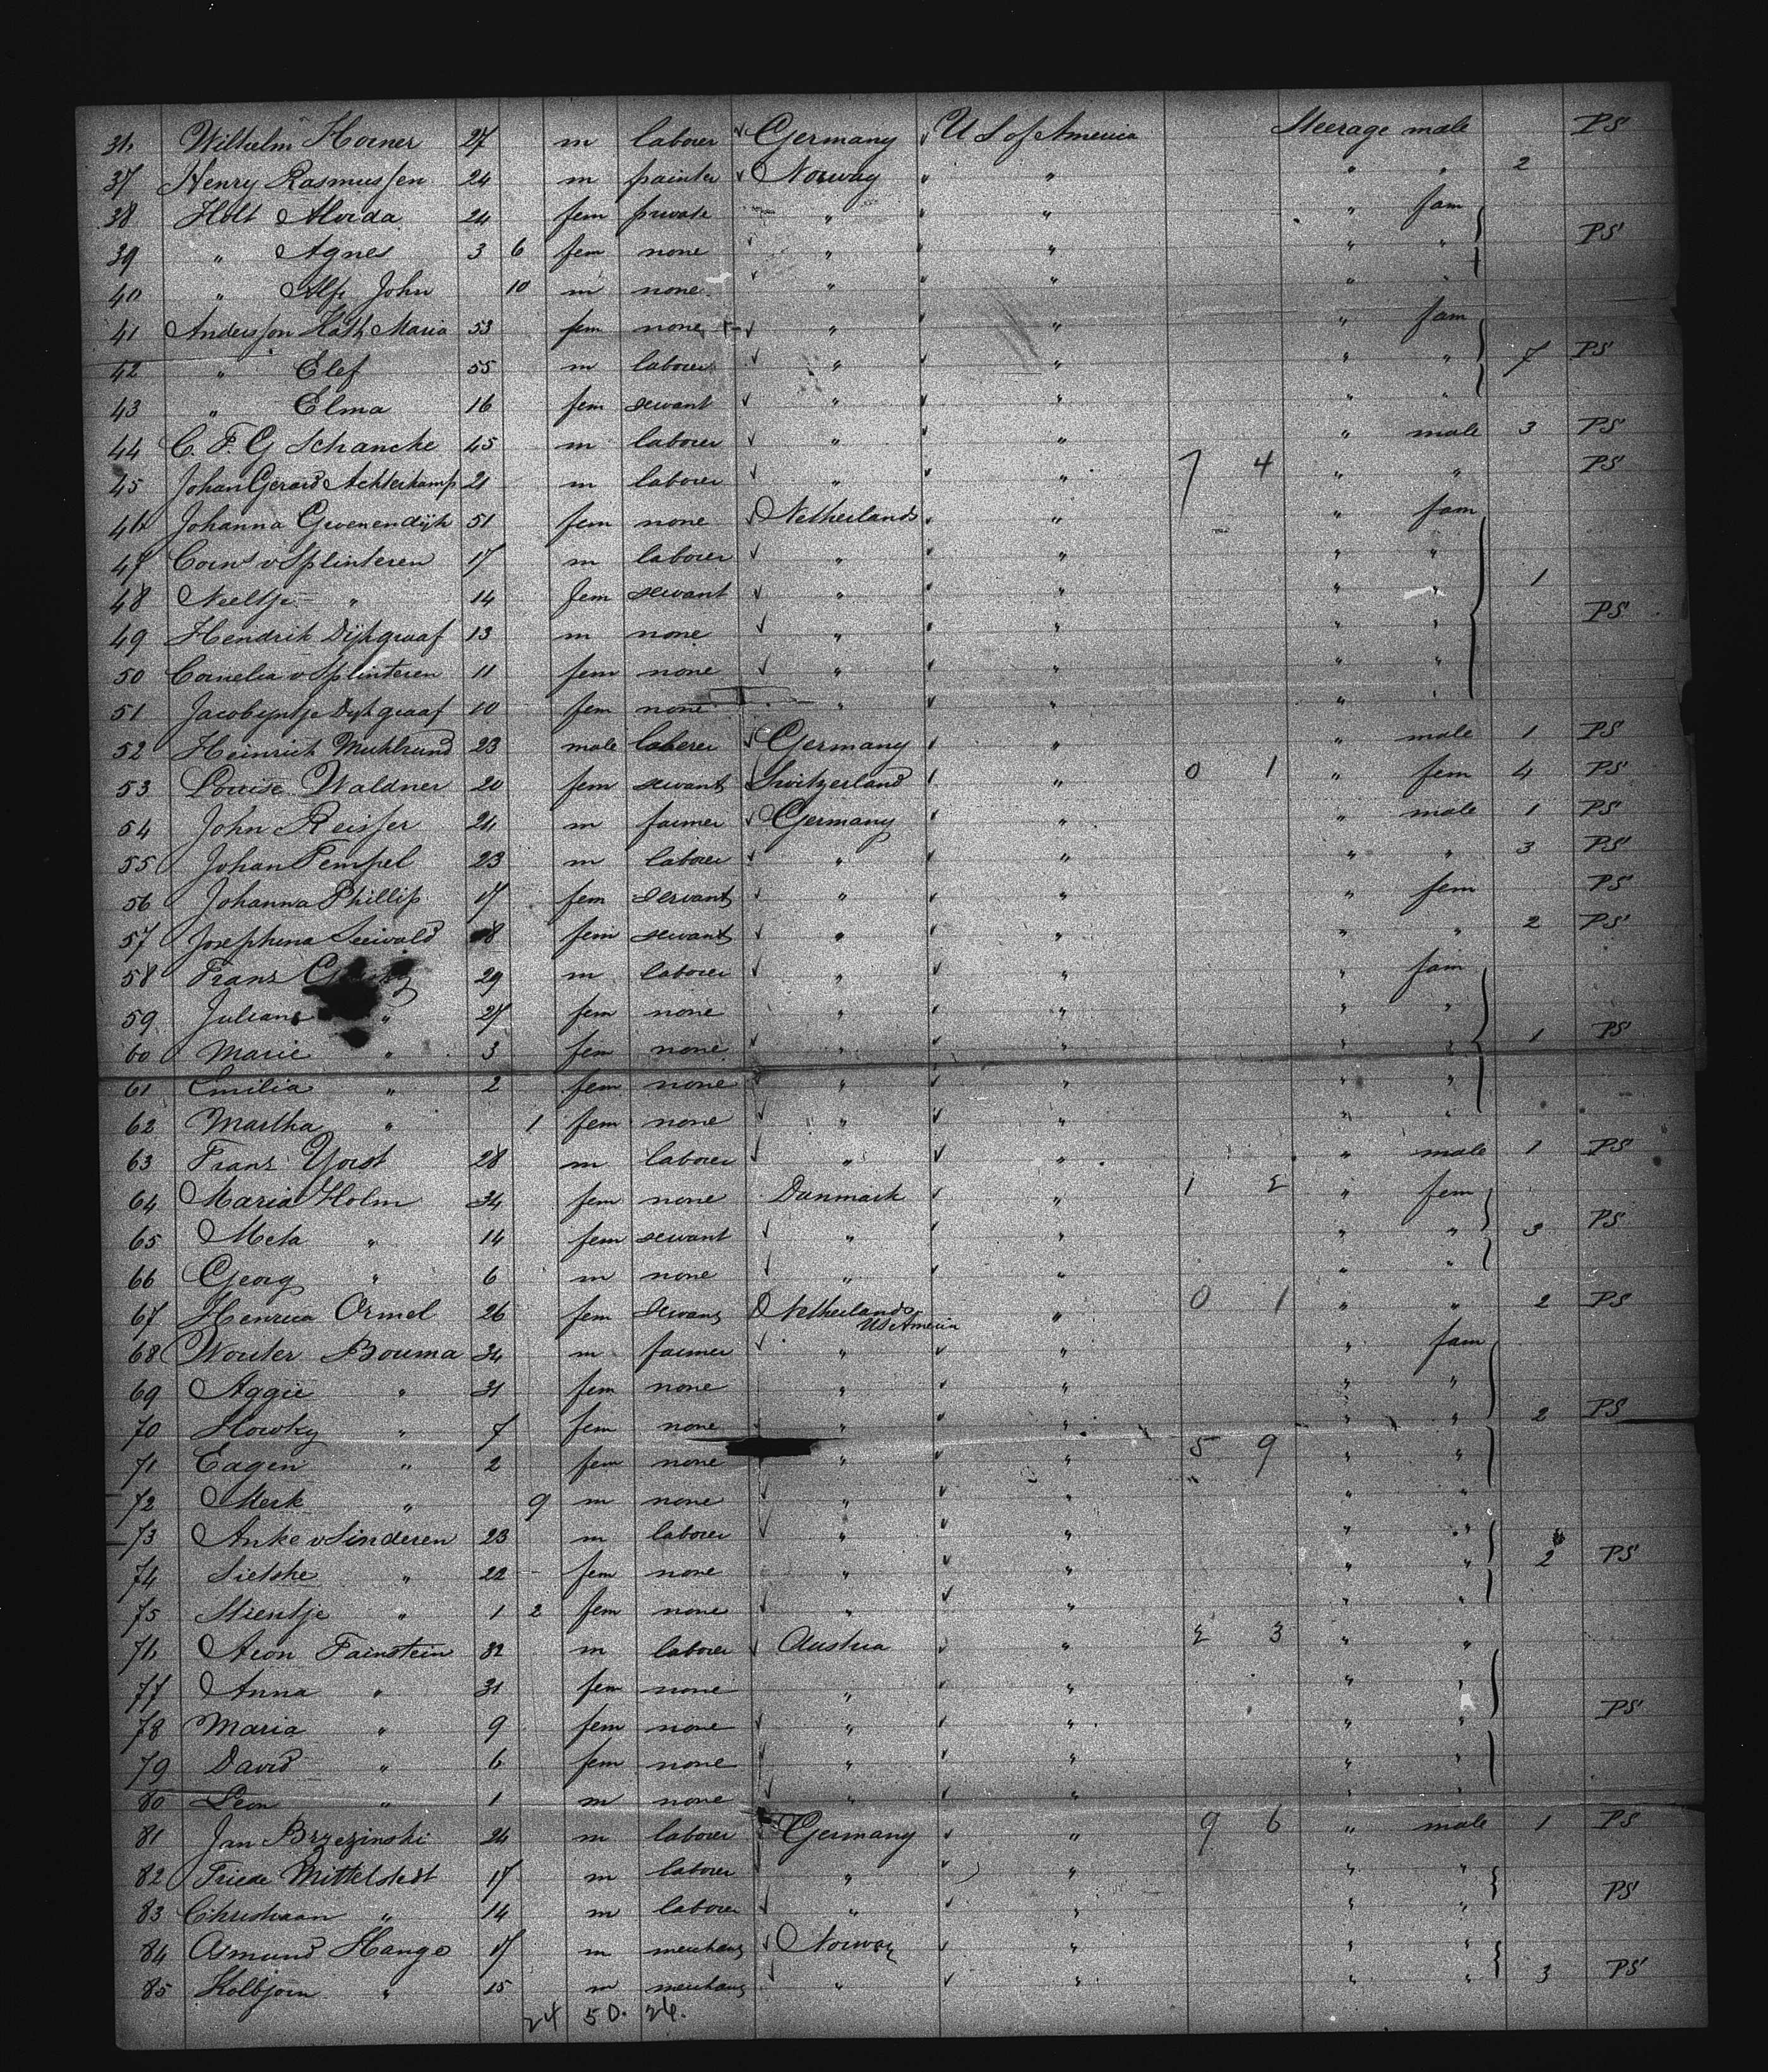 36 Wilhelm Horner 27 m laborer Germany U S of America Steerage male PS
37 Henry Rasmussen 24 m painter Norway " " " 2
38 Holt Alvida 24 fem private " " " fam
39 " Agnes 3 6 fem none " " " " PS
40 " Alf John 10 m none " " " "
41 Anderson Kath Maria 53 fem none " " " fam
42 " Elef 55 m laborer " " " " 7 PS
43 " Elma 16 fem servant " " " "
44 C. F. G Schanche 45 m laborer " " " male 3 PS
45 Johan Gerard Achterkamp 21 m laborer " " 7 4 " " PS
46 Johanna Groenendijk 51 fem none Netherlands " " fam
47 Corns v Splinteren 17 m laborer " " " "
48 Neeltje " 14 fem servant " " " " 1
49 Hendrik Dijkgraaf 13 m none " " " " PS
50 Cornelia v Splinteren 11 fem none " " " "
51 Jacobijntje Dijkgraaf 10 fem none " " " "
52 Heinrich 23 male laborer Germany " " male 1 PS
53 Louise Waldner 20 fem servant Switzerland " 0 1 " fem 4 PS
54 John Reisser 24 m farmer Germany " " male 1 PS
55 Johan Tempel 23 m laborer " " " " 3 PS
56 Johanna Phillip 17 fem servant " " " fem PS
57 Josephina Seewald 18 fem servant " " " " 2 PS
58 Franz 29 m laborer " " " fam
59 Juliane " 27 fem none " " " "
60 Marie " 3 fem none " " " " 1 PS
61 Emilia " 2 fem none " " " "
62 Martha " 1 fem none " " " "
63 Franz Yorst 28 m laborer " " " male 1 PS
64 Maria Holm 34 fem none Danmark " 1 2 " fem
65 Meta " 14 fem servant " " " " 3 PS
66 Georg " 6 m none " " " "
67 Henrica Ormel 26 fem servant Netherlands " 0 1 " " 2 PS
US America
68 Wouter Bouma 34 m farmer " " " fam
69 Aggie " 31 fem none " " " "
70 Howky " 7 fem none " " " " 2 PS
71 Eagen " 2 fem none " " 5 9 " "
72 Merk " 9 m none " " " "
73 Anke v Sinderen 23 m laborer " " " "
74 Sietske " 22 fem none " " " " 2 PS
75 Mientje " 1 2 fem none " " " "
76 Aron Fainstein 32 m laborer Austria " 2 3 " "
77 Anna " 31 fem none " " " "
78 Maria " 9 fem none " " " " PS
79 David " 6 fem none " " " "
80 Leon " 1 m none " " " "
81 Jan Brzezinski 24 m laborer Germany " 9 6 " male 1 PS
82 Friede Mittelstedt 17 m laborer " " " "
83 Christiaan " 14 m laborer " " " " PS
84 Asmund Hange 17 m merchant Norway " " "
85 Kolbjorn " 15 m merchant " " " " 3 PS
24 50. 26.